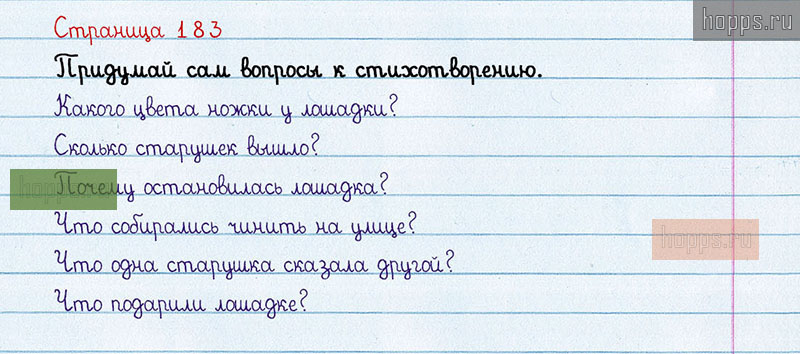 hopps.ru
Страница 183
Придумай сам вопросы к стихотворению.
Какого цвета ножки у лошадки?
Сколько старушек вышло?
hopps.ru
Почему остановилась лошадка?
Что собирались чинить на улице?
hopps.ru
Что одна старушка сказала другой?
Что подарили лошадке?